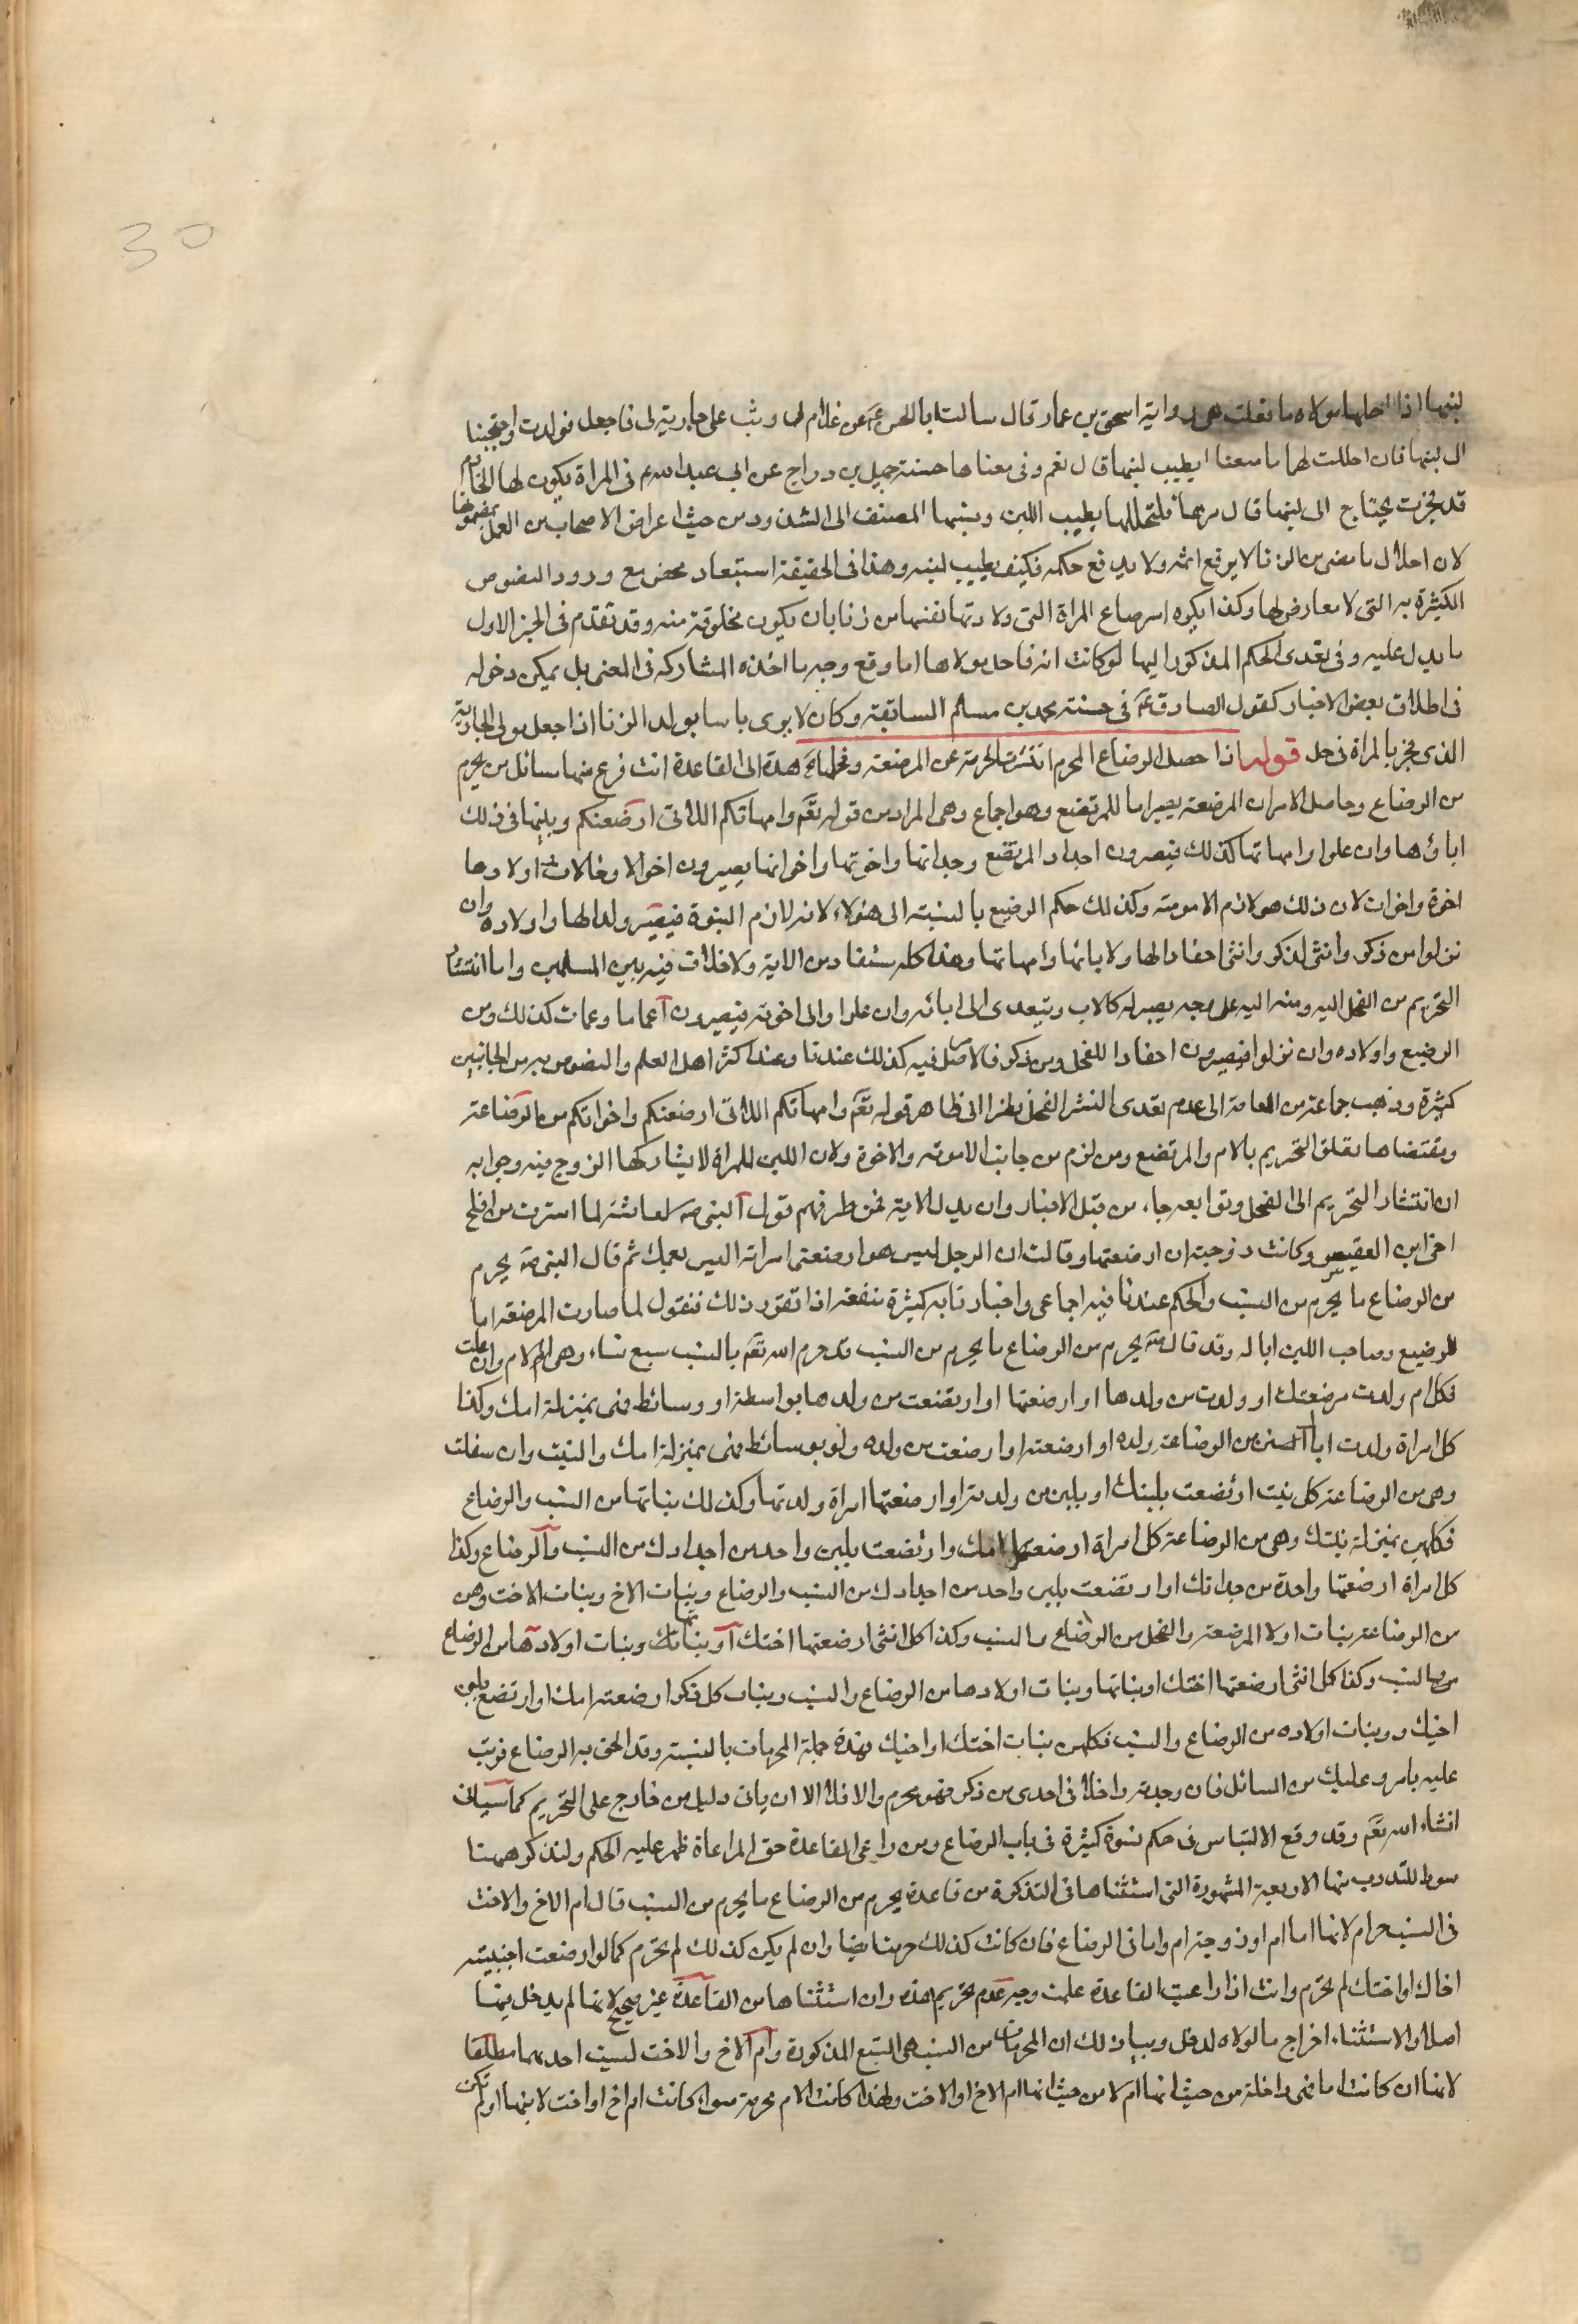 30
لبنها اذا احلها مولاه ما فعلت هى رواية اسحق بن عمار قال سالت ابا الحسن ع عن غلام لى وثب على جارية لى فاحبل فولدت واحتجنا
الى لبنها فان احللت لهما ما صنعا ايطيب لبنها قال نعم وفى معناها حسنة جميل بن دراج عن ابى عبد الله ع فى المراة يكون لها الخادم
قد فجرت يحتاج الى لبنها قال مرها فلتحللها يطيب اللبن ونسبها المصنف الى الشذوذ من حيث اعراض الاصحاب من العمل بمضمونها
لان احلال ما مضى من الزنا لا يرفع اثمه ولا يدفع حكمه فكيف يطيب لبنه وهذا فى الحقيقة استبعاد محض مع ورود النصوص
الكثيرة به التى لا معارض لها وكذا يكره استرضاع المراة التى ولادتها نفسها من زنا بان يكون مخلوقة منه وقد تقدم فى الخبر الاول
ما يدل عليه وفى تعدى الحكم المذكور اليها لو كانت امة فاحل مولاها ما وقع وجه ماخذه المشاركة فى المعنى بل يمكن دخوله
فى اطلاق بعض الاخبار كقول الصادق ع فى حسنة محمد بن مسلم السابقة وكان لا يرى باسا بولد الزنا اذا جعل مولى الجارية
الذى فجر بالمراة فى حل قوله اذا حصل الرضاع المحرم انتشرت الحرمة عن المرضعة وفحلها هذه الى القاعدة التى فرع منها مسائل من يحرم
من الرضاع وحاصل الامر ان المرضعة يصير اما للمرتضع وهو اجماع وهى المراد من قوله تعم وامهاتكم اللاتى ارضعنكم ويلزمها فى ذلك
اباؤها وان علوا وامهاتها كذلك فيصيرون اجداد المرتضع وجداتها واخوتها واخواتها يصيرون اخوالا وخالات اولادها
اخوة واخوات لان ذلك هو لازم الامومة وكذلك حكم الرضيع بالنسبة الى هؤلاء لانه لازم البنوة فيصير ولدا لها واولاده وان
نزلوا من ذكر وانثى لذكر وانثى احفادا لها ولابائها وامهاتها وهذا كله مستفاد من الاية ولا خلاف فيه بين المسلمين واما انتشار
التحريم من الفحل اليه ومنه اليه على وجه يصير له كالاب ويتعدى الى ابائه وان علوا والى اخوته فيصيرون اعماما وعمات كذلك ومن
الرضيع واولاده وان نزلوا فيصيرون احفادا للفحل ومن ذكر فالاصل فيه كذلك عندنا وعند اكثر اهل العلم والنصوص به من الجانبين
كثيرة وذهب جماعة من العامة الى عدم تعدى النشر الى الفحل نظرا الى ظاهر قوله تعم وامهاتكم اللاتى ارضعنكم واخواتكم من الرضاعة
ومقتضاها تعلق التحريم بالام والمرتضع ومن لزم من جانب الامومة والاخوة ولان اللبن للمراة لا يشاركها الزوج فيه وجوابه
ان انتشار التحريم الى الفحل وتوابعه جاء من قبل الاخبار وان يدل الاية فمن طرفهم قول النبى ص لعائشة لما استترت من افلح
اخى ابن القعيس وكانت زوجته ان ارضعتها وقالت ان الرجل ليس هو ارضعتنى امراته اليس بعمك ثم قال النبى ص يحرم
من الرضاع ما يحرم من النسب والحكم عندنا فيه اجماعى واخبارنا به كثيرة متفقة اذا تقرر ذلك فنقول لما صارت المرضعة اما
للرضيع وصاحب اللبن ابا له وقد قال ص يحرم من الرضاع ما يحرم من النسب قد حرم الله تعم بالنسب سبع نساء وهى الام وان علت
فكل ام ولدت مرضعتك او ولدت من ولدها او ارضعتها او ارتضعت من ولدها بواسطة او وسائط فهى بمنزلة امك وكذا
كل امراة ولدت اباك من الرضاعة ولده او ارضعته او ارضعت من ولده ولو بوسائط فهى بمنزلة امك والبنت وان سفلت
وهى من الرضاعة كل بنت ارتضعت بلبنك او بلبن من ولدته او ارضعتها امراة ولدتها وكذلك بناتها من النسب والرضاع
فكلهن بمنزلة بنتك وهى من الرضاعة كل امراة ارضعتها امك وارتضعت بلبن واحد من اجدادك من النسب والرضاع وكذا
كل امراة ارضعتها واحدة من جداتك او ارتضعت بلبن واحد من اجدادك من النسب والرضاع وبنات الاخ وبنات الاخت وهن
من الرضاعة بنات اولاد المرضعة والفحل من الرضاع والنسب وكذا كل انثى ارضعتها اختك او بناتها وبنات اولادها من الرضاع
من والنسب وكذا كل انثى ارضعتها اختك او بناتها وبنات اولادها من الرضاع والنسب وبنات كل ذكر ارضعته امك او ارتضع بلبن
اخيك وبنات اولاده من الرضاع والنسب فكلهن بنات اختك او اخيك فهذه جملة المحرمات بالنسبة وقد الحق به الرضاع فرتب
عليه ما يرد عليك من المسائل فان وجدته داخلا فى احدى من ذكر فهو محرم والا فلا الا ان ياتى دليل من خارج على التحريم كما سياتى
انشاء الله تعم وقد وقع الالتباس فى حكم نسوة كثيرة فى باب الرضاع ومن راعى القاعدة حق المراعاة ظهر عليه الحكم ولنذكر ههنا
صورا للتدرب منها الاربعة المشهورة التى استثناها فى التذكرة من قاعدة يحرم من الرضاع ما يحرم من النسب قال ام الاخ والاخت
فى النسب حرام لانها اما ام او زوجة اب واما فى الرضاع فان كانت كذلك حرمت ايضا وان لم يكن كذلك لم يحرم كما لو ارضعت اجنبية
اخاك او اختك لم تحرم وانت اذا راعيت القاعدة علمت وجه عدم تحريم هذه وان استثناها من القاعدة غير صحيح لانها لم يدخل فيها
اصلا والاستثناء اخراج ما لولاه لدخل وبيان ذلك ان المحرمات من النسب هى السبع المذكورة وام الاخ والاخت ليست احديهما مطلقا
لانها ان كانت اما فهى داخلة من حيث انها ام لا من حيث انها ام الاخ او الاخت ولهذا كانت الام محرمة سواء كانت ام اخ او اخت لابنها او لم تكن